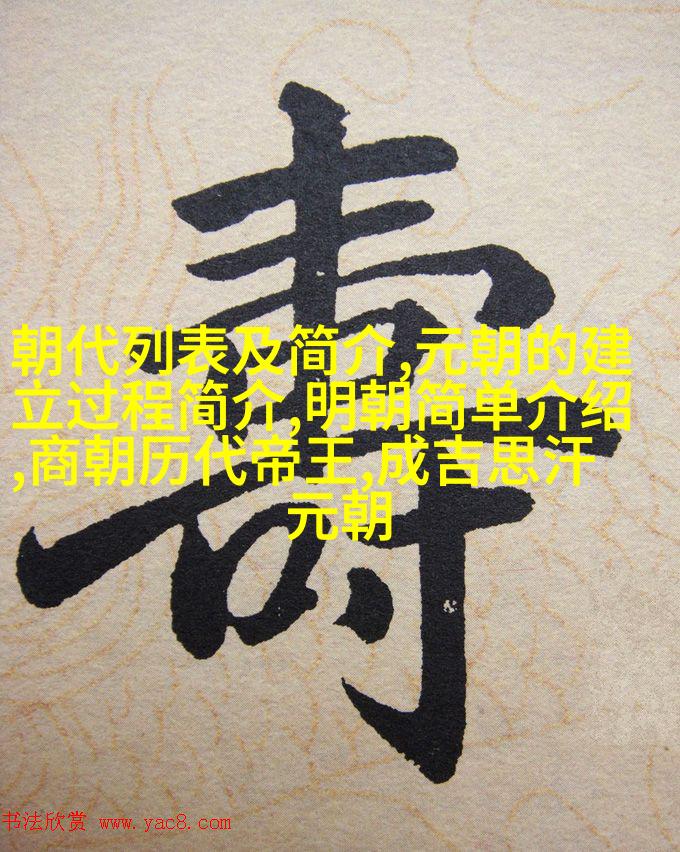 壽
朝代列表及简介,元朝的建
立过程简介,明朝简单介绍
,商朝历代帝王,成吉思汗
元朝
书法欣赏 www.yac8.com